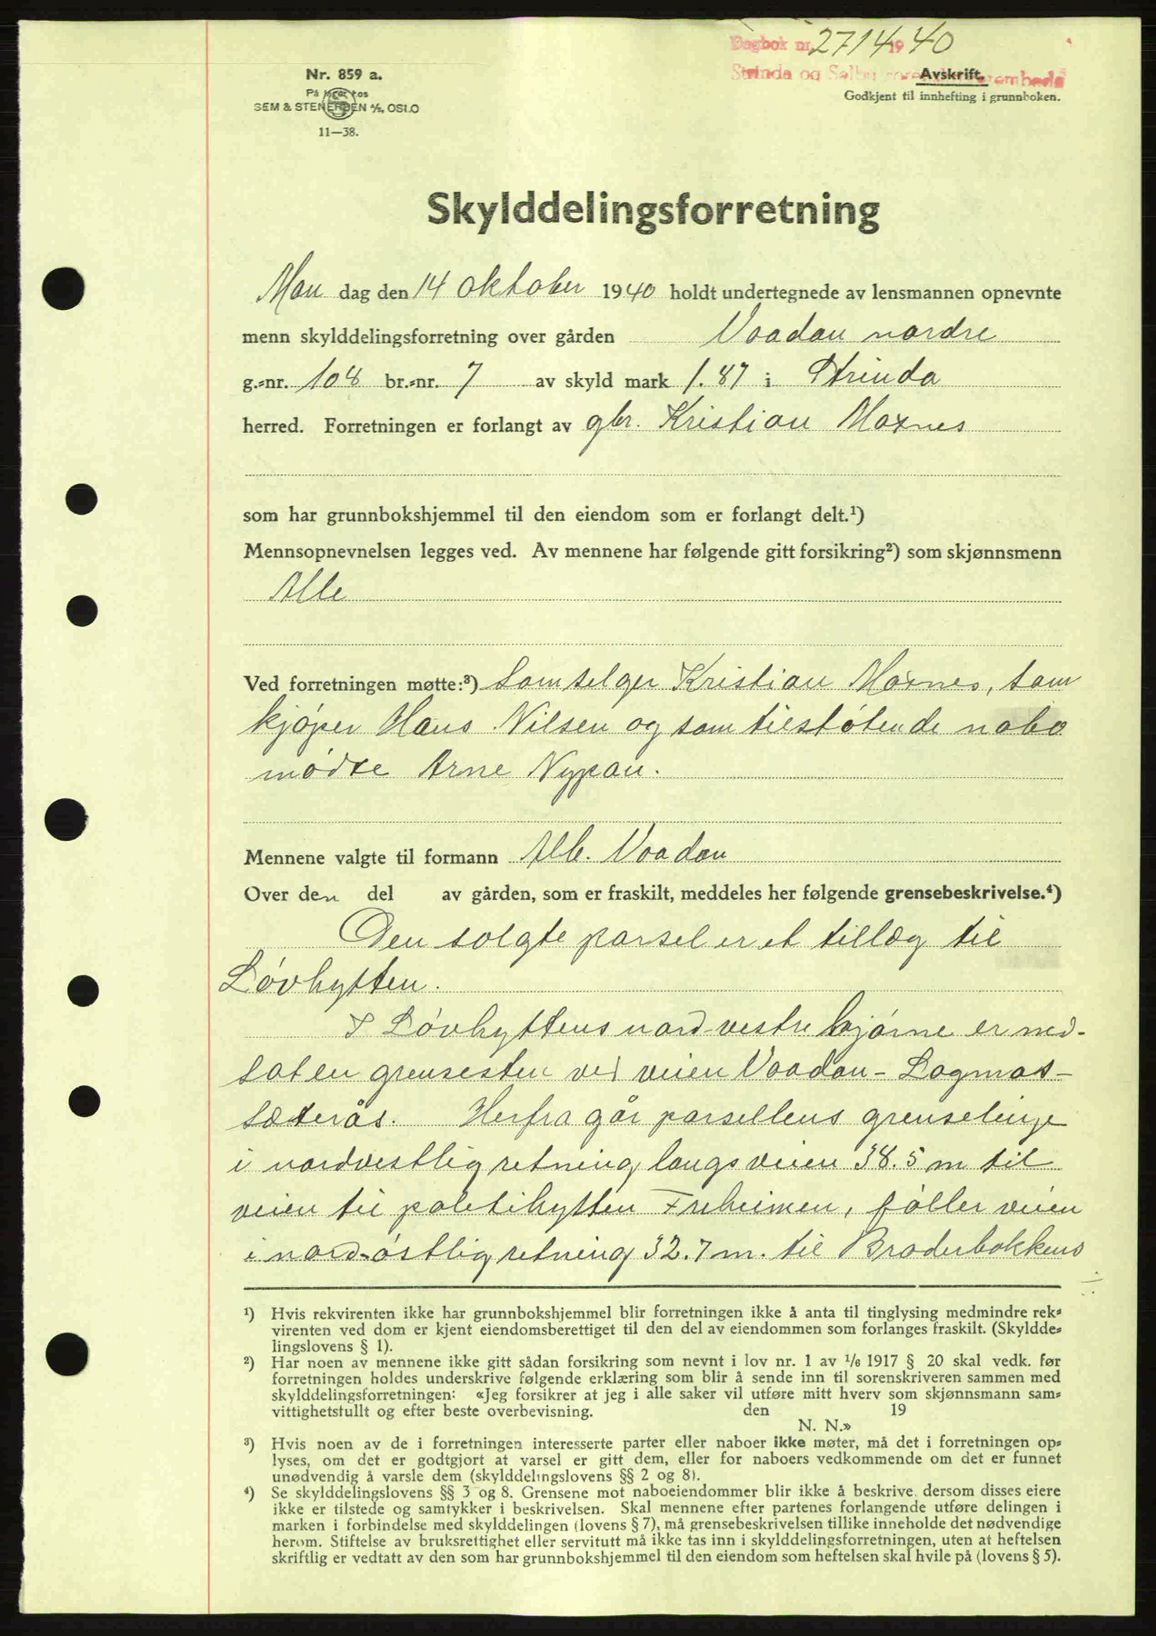 Dagbok nr. 2714 1940
Strinda og Selbu sorenskriverembede
Nr. 859 a.
På lager hos
SEM & STENERSEN A/S, OSLO
11—38.
Avskrift.
Godkjent til innhefting i grunnboken.
Skylddelingsforretning
Mandag den 14 oktober 1940 holdt undertegnede av lensmannen opnevnte
menn skylddelingsforretning over gården Vaadan nordre
g.-nr. 108 br.-nr. 7 av skyld mark 1.87 i Strinda
herred. Forretningen er forlangt av gbr. Kristian Moxnes
som har grunnbokshjemmel til den eiendom som er forlangt delt.¹)
Mennsopnevnelsen legges ved. Av mennene har følgende gitt forsikring²) som skjønnsmenn
Alle
Ved forretningen møtte:³) Som selger Kristian Moxnes, som
kjøper Hans Nilsen og som tilstøtende nabo
mødte Arne Nypan.
Mennene valgte til formann Alb. Vaadan
Over den del av gården, som er fraskilt, meddeles her følgende grensebeskrivelse.⁴)
Den solgte parsel er et tillæg til
Løvhytten.
I Løvhyttens nord-vestre hjørne er ned-
sat en grensesten ved veien Vaadan - Lagmas-
sæterås. Herfra går parsellens grenselinje
i nordvestlig retning langs veien 38.5 m til
veien til politihytten Friheimen, føller veien
i nord-østlig retning 32.7 m. til Broderbakkens
¹) Hvis rekvirenten ikke har grunnbokshjemmel blir forretningen ikke å anta til tinglysing medmindre rek-
virenten ved dom er kjent eiendomsberettiget til den del av eiendommen som forlanges fraskilt. (Skyldde-
lingslovens § 1).
²) Har noen av mennene ikke gitt sådan forsikring som nevnt i lov nr. 1 av 1/6 1917 § 20 skal vedk. før
forretningen holdes underskrive følgende erklæring som blir å sende inn til sorenskriveren sammen med
skylddelingsforretningen: «Jeg forsikrer at jeg i alle saker vil utføre mitt hverv som skjønnsmann sam-
vittighetsfullt og efter beste overbevisning. den 19
N. N.»
³) Hvis noen av de i forretningen interesserte parter eller naboer ikke møter, må det i forretningen op-
lyses, om det er godtgjort at varsel er gitt dem, eller for naboers vedkommende om det er funnet
unødvendig å varsle dem (skylddelingslovens §§ 2 og 8).
⁴) Se skylddelingslovens §§ 3 og 8. Grensene mot naboeiendommer blir ikke å beskrive, dersom disses eiere
ikke er tilstede og samtykker i beskrivelsen. Skal mennene efter partenes forlangende utføre delingen i
marken i forbindelse med skylddelingen (lovens § 7), må grensebeskrivelsen tillike inneholde det nødvendige
herom. Stiftelse av bruksrettighet eller servitutt må ikke tas inn i skylddelingsforretningen, uten at heftelsen
skriftlig er vedtatt av den som har grunnbokshjemmel til den eiendom som heftelsen skal hvile på (lovens § 5).